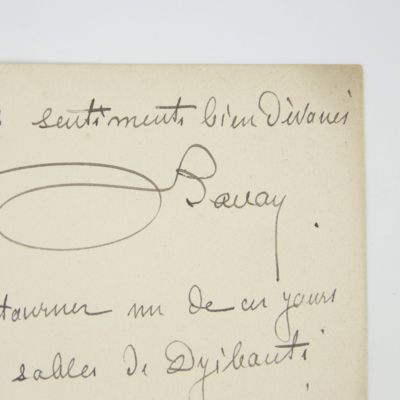 sentiments bien dévoués
Savay
tourner un de ces jours
sables de Djibouti